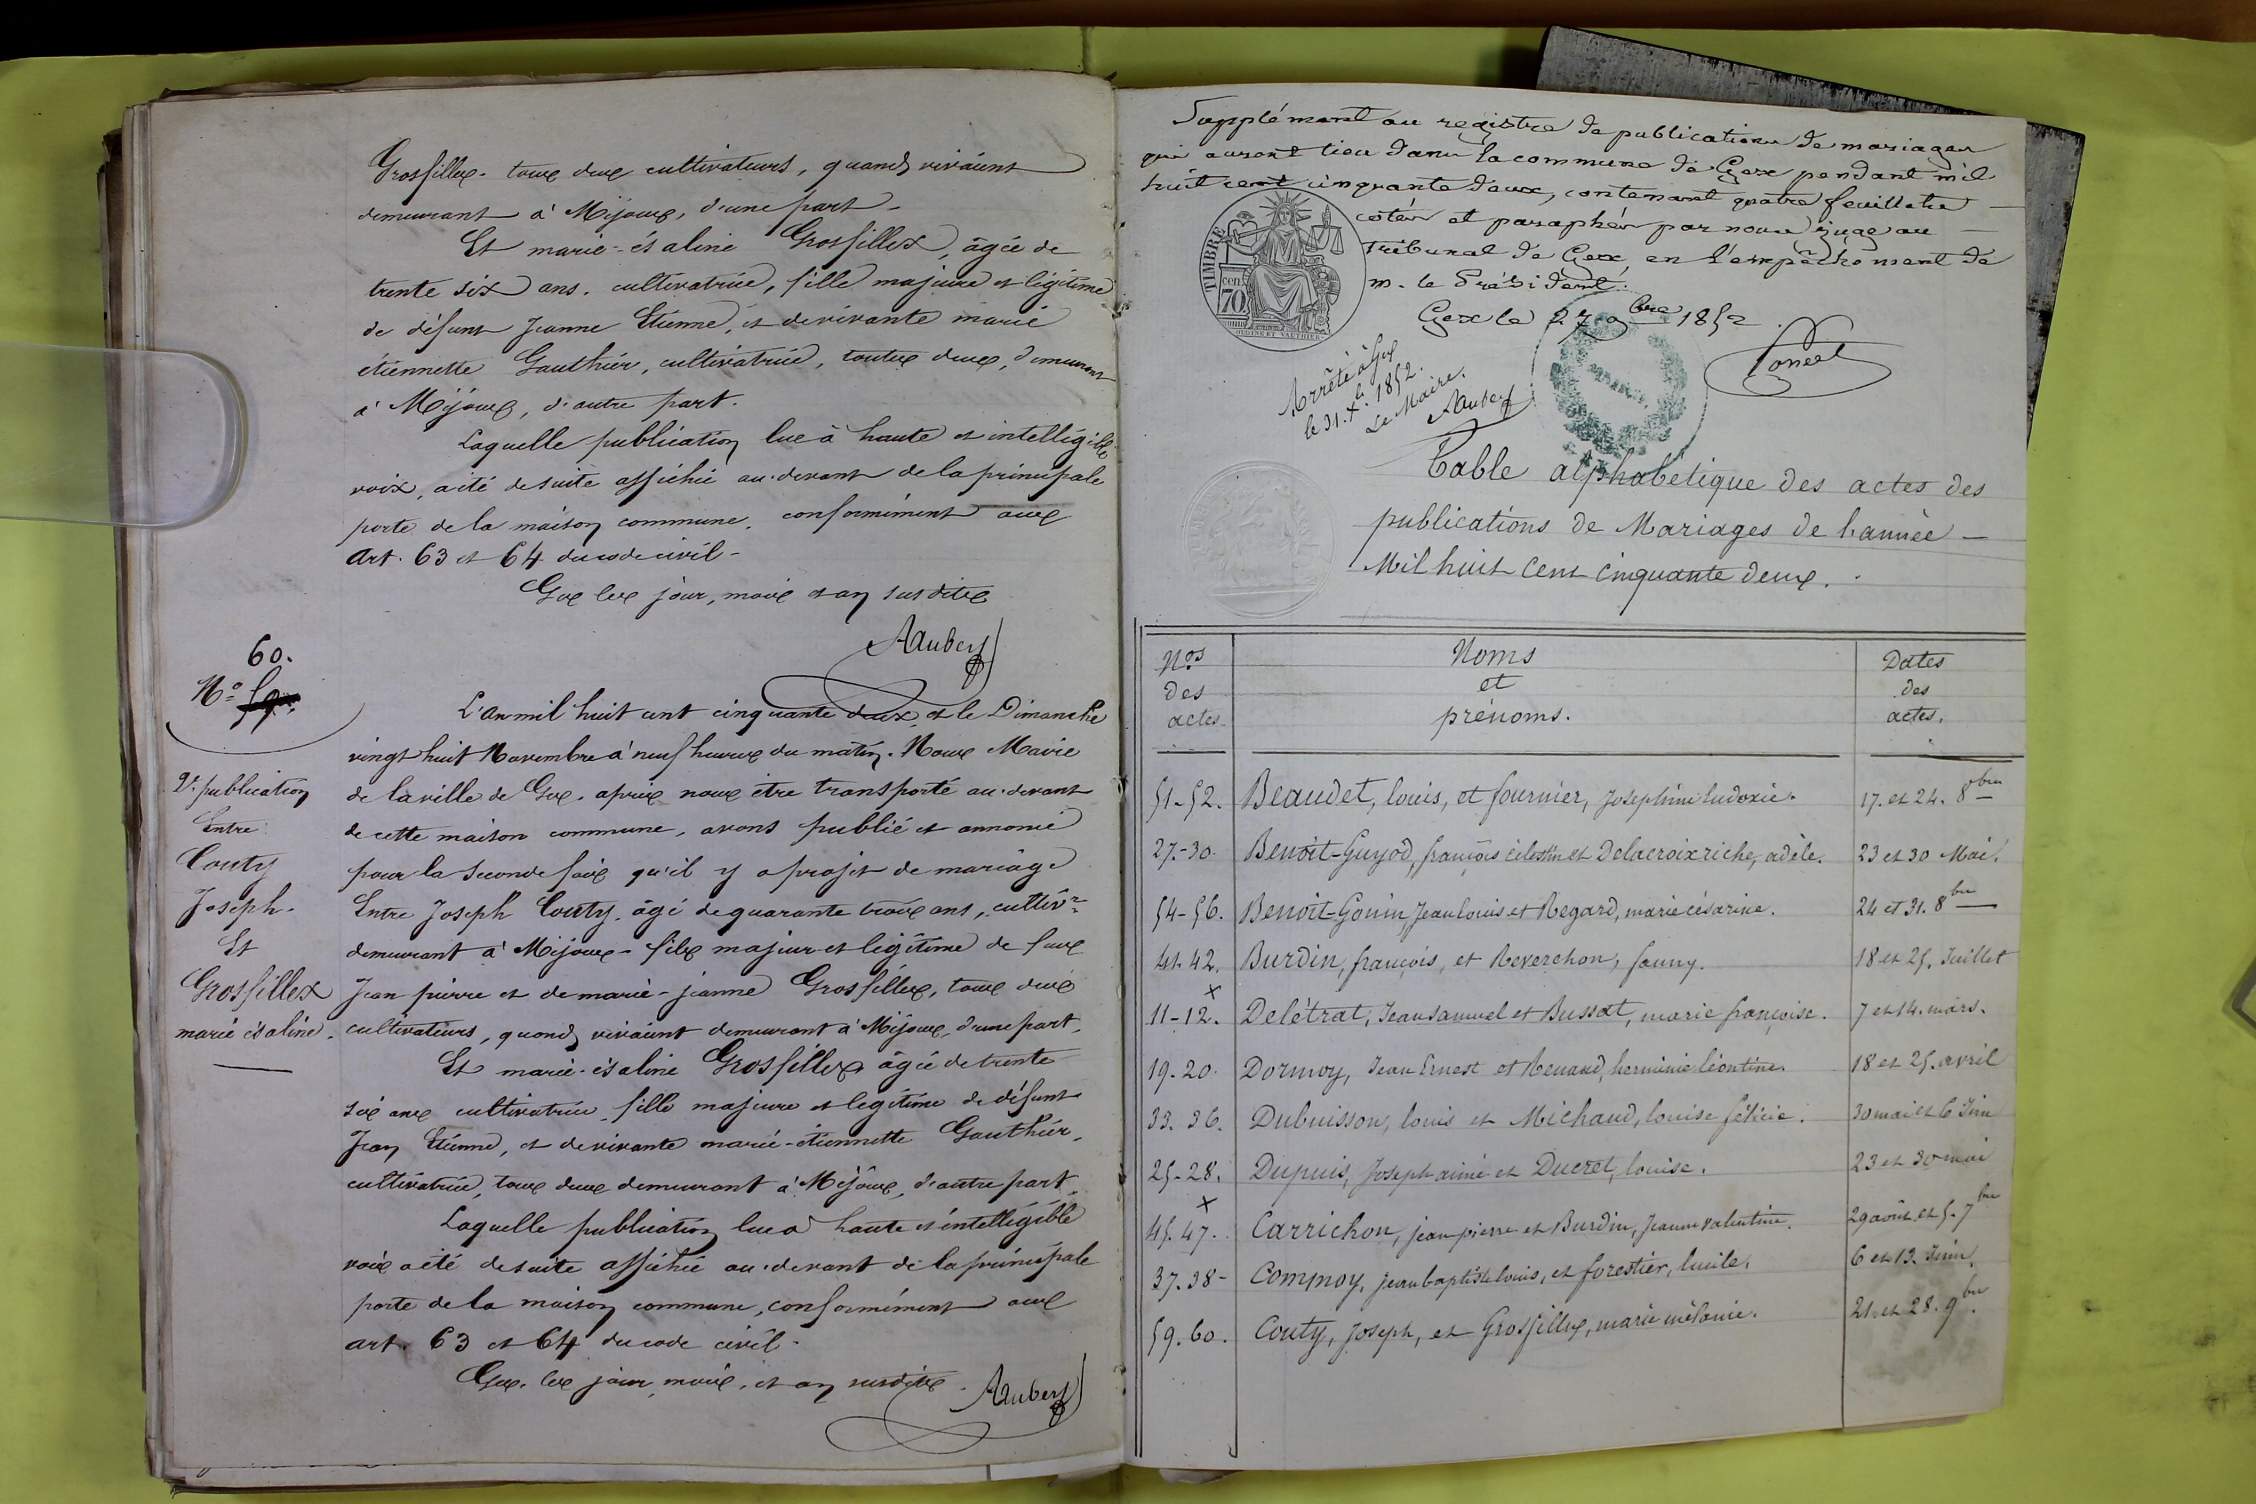 Grosfillex. tous deux cultivateurs, quand vivaient
demeurant à Mijoux, d'une part.
Et marie-ésaline Grosfillex, âgée de
trente six ans. cultivatrice, fille majeure et légitime
de défunt Jeanne Etienne, et de vivante marie
étiennette Gauthier, cultivatrice, toutes deux, demeurant
à Mijoux, d'autre part.
Laquelle publication lue à haute et intelligible
voix, a été de suite affichée au-devant de la principale
porte de la maison commune, conformément aux
art. 63 et 64 du code civil-
Gex les jour, mois et an susdits
AAubert
60.
N° 59.
2e publication
Entre
Couty
Joseph.
Et
Grosfillex
marie ésaline.
L'an mil huit cent cinquante deux et le Dimanche
vingt huit Novembre à neuf heures du matin. Nous Maire
de la ville de Gex. après nous être transporté au-devant
de cette maison commune, avons publié et annoncé
pour la seconde fois qu'il y a projet de mariage
Entre Joseph Couty, âgé de quarante trois ans, cultivr
demeurant à Mijoux - fils majeur et légitime de feux
Jean pierre et de marie-jeanne Grosfillex, tous deux
cultivateurs, quand vivaient demeurant à Mijoux, d'une part.
Et marie-ésaline Grosfillex âgée de trente
six ans cultivatrice fille majeure et légitime de défunt
Jean Etienne, et de vivante marie-étiennette Gauthier,
cultivatrice, tous deux demeurant à Mijoux, d'autre part.
Laquelle publication lue à haute et intelligible
voix a été de suite affichée au-devant de la principale
porte de la maison commune, conformément aux
art. 63 et 64 du code civil.
Gex. les jour, mois, et an susdits.
AAubert
Supplément au registre de publications de mariages
qui auront lieu dans la commune de Gex pendant mil
huit cent cinquante deux, contenant quatre feuillets
cotés et paraphés par nous juge au
tribunal de Gex, en l'empêchement de
m. le Président.
Gex le 27 9bre 1852.
TIMBRE
70
Arrêté à Gex
le 31. Xbre 1852.
Le Maire.
AAubert
Table alphabétique des actes des
publications de Mariages de l'année
Mil huit cent cinquante deux.
Nos des actes
Noms et prénoms.
Dates des actes.
51-52. Beaudet, louis, et fournier, Joséphine ludoxie. 17. et 24. 8bre
27-30. Benoit-Guyod, françois célestin et Delacroixriche, adèle. 23 et 30 Mai.
54-56. Benoit-Gonin, Jean louis et Regard, marie césarine. 24 et 31. 8bre
41-42. Burdin, françois, et Reverchon, fanny. 18 et 25. Juillet
11-12. x Delétrat, Jean samuel et Bussat, marie françoise. 7 et 14. mars.
19-20. Dormoy, Jean Ernest et Renaud, herminie léontine. 18 et 25. avril
33. 36. Dubuisson, louis et Michaud, louise félicie. 30 mai et 6 Juin
25-28. Dupuis, Joseph aimé et Ducret, louise. 23 et 30 mai
45. 47. x Carrichon, jean pierre et Burdin, Jeanne valentine. 29 août et 5. 7bre
37. 38- Compoy, jean baptiste louis, et forestier, lucile. 6 et 13. Juin.
59. 60. Couty, Joseph, et Grosfillex, marie mélanie. 21. et 28. 9bre.